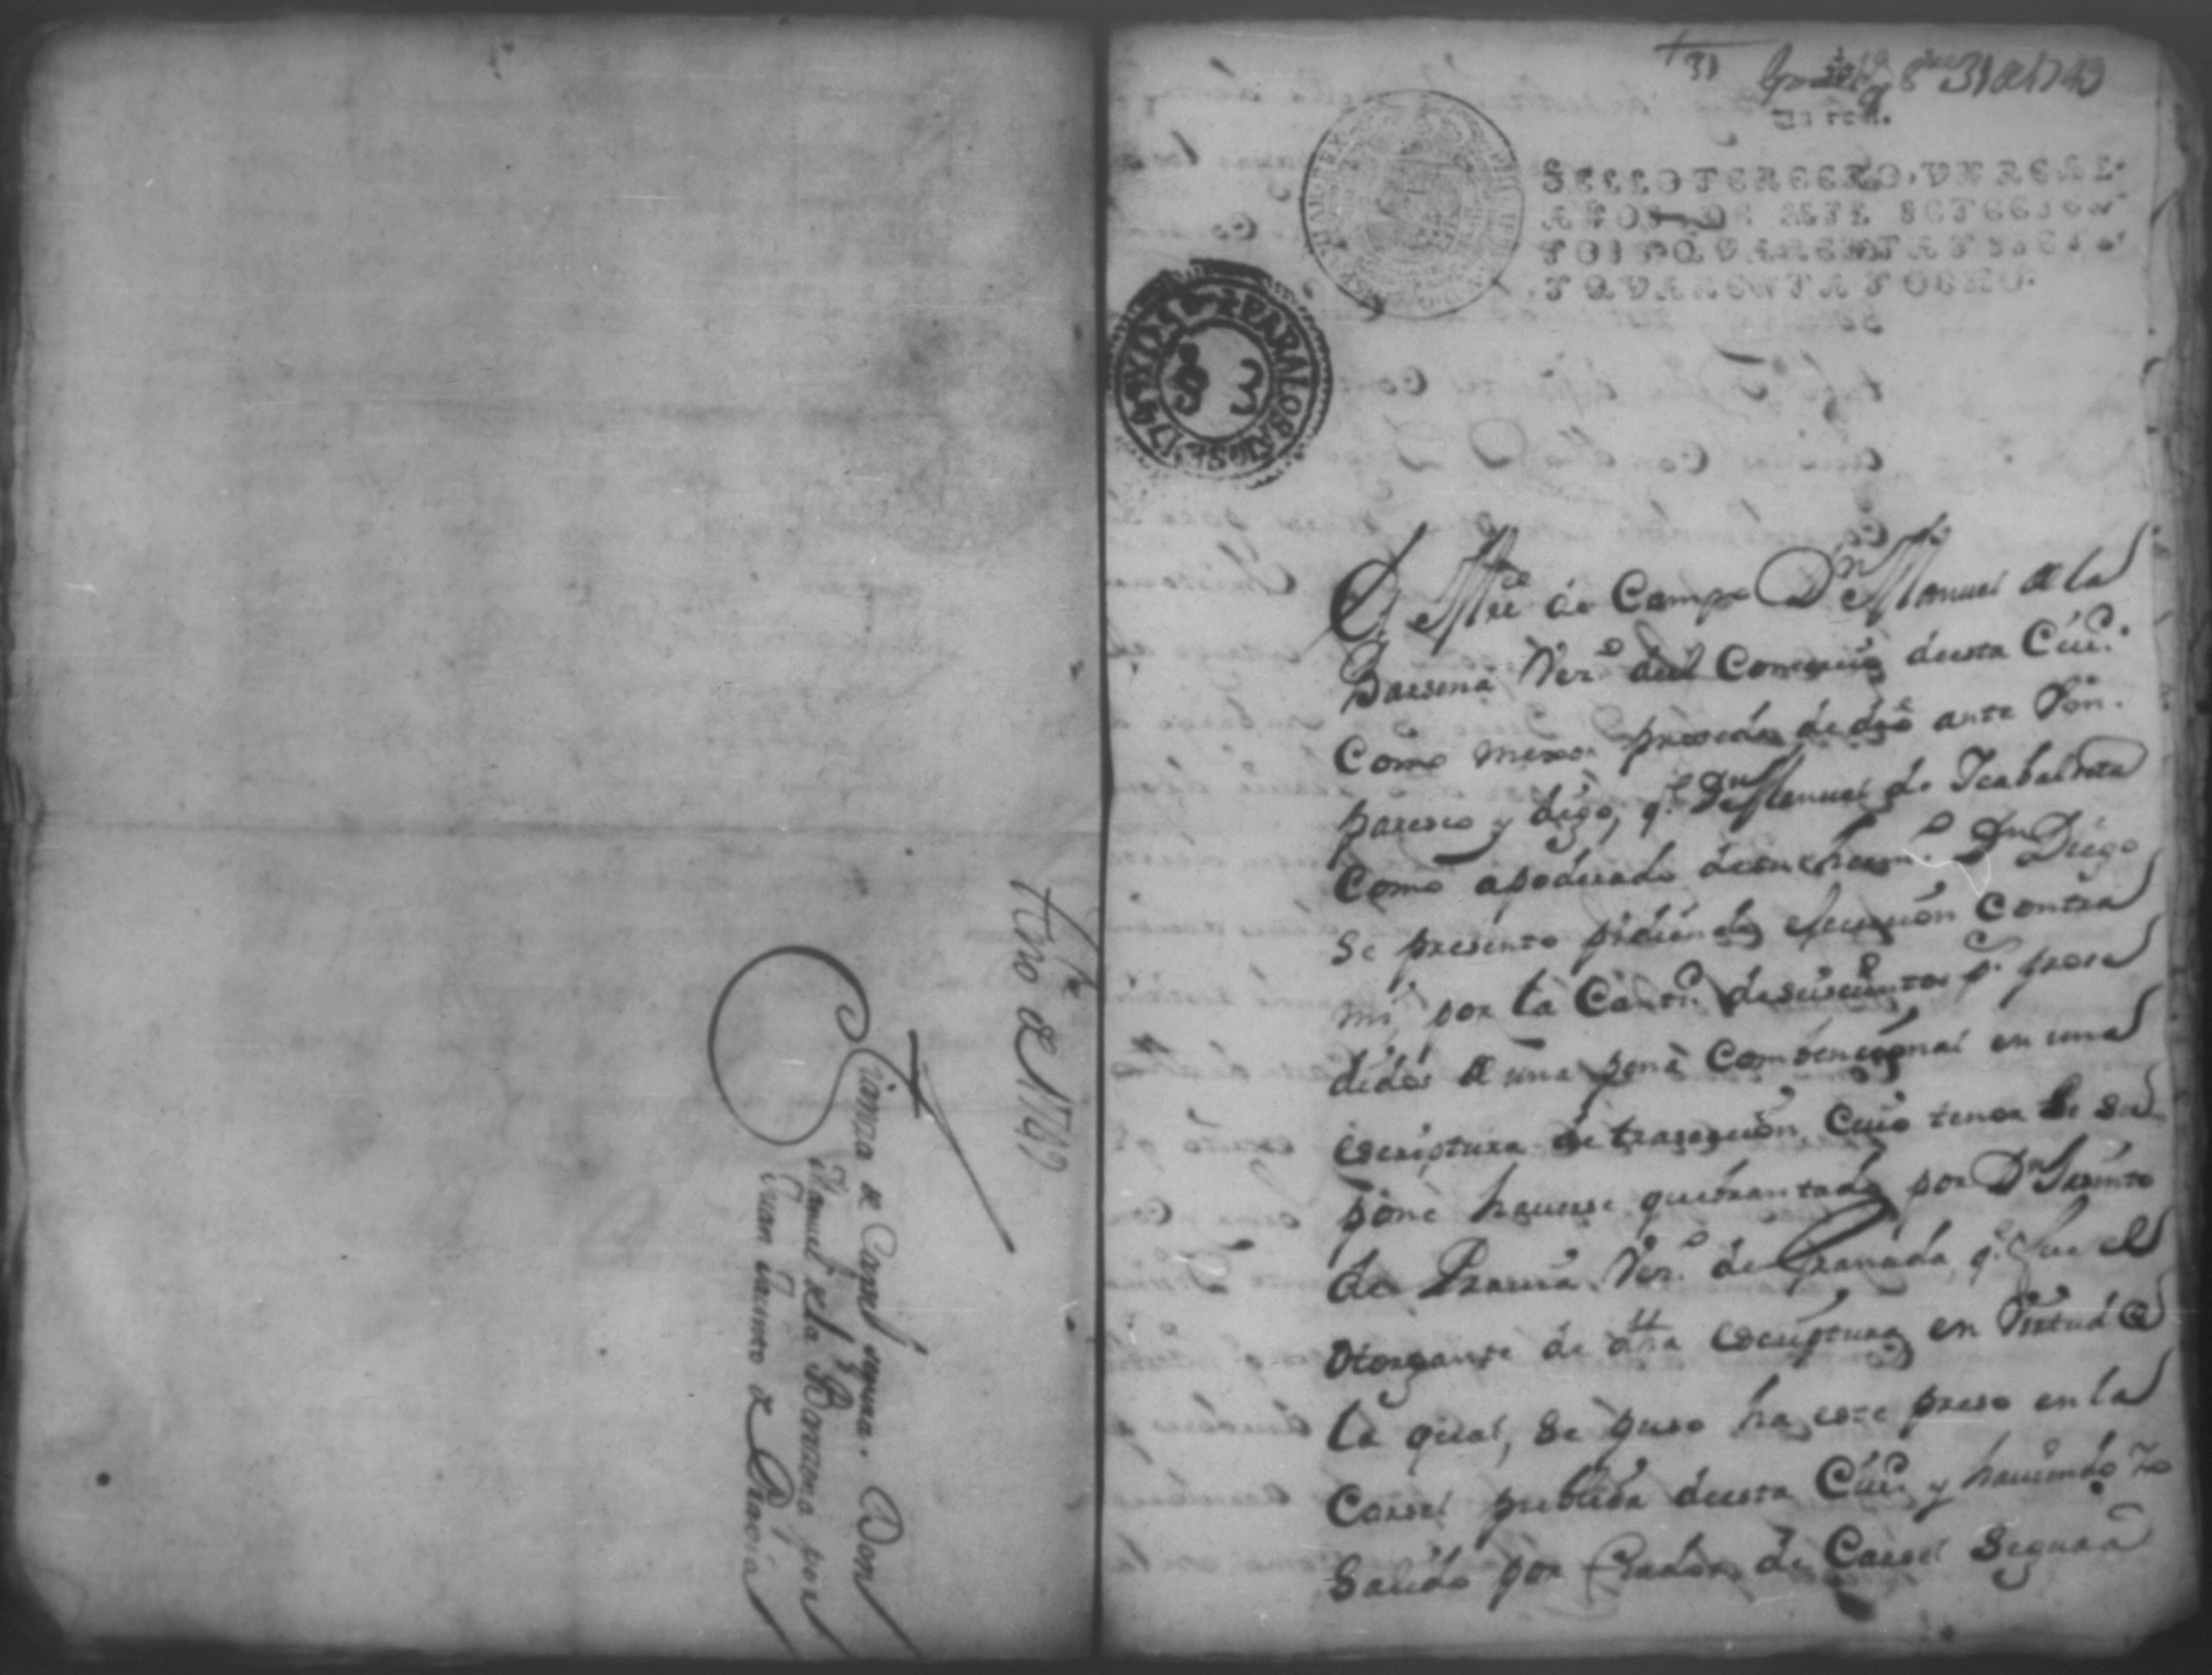 Henº de 1749
Fianza de Carcel segura. Don
Manuel de la Barzena por
Juan Jacinto de Pracia
31 de 1749
Un real.
SELLO TERCERO, VN REAL,
AÑOS DE MIL SETECIEN-
TOS Y QVARENTA Y SIETE,
Y QVARENTA Y OCHO.
PARA LOS AÑOS 1749 Y DE 50
El Mre de Campo Dn Manuel de la
Barsena Vez.º del Comercio deesta Ciu.
Como mexor proceda de dro ante Vm.
paresco y digo, q.e Dn Manuel de Icabalseta
Como apoderado desu herm.º Dn Diego
Se presento pidiendo execucion Contra
mi por la Cant.d deseiscientos p.s proce
didos de una pena Combencional en una
escriptura de trasaccion, Cuio tenor Se Su
pone hauerse quebrantado por Dn Jasinto
de Pracia Vez.º de Granada q.e fue el
Otorgante de dha escriptura en Virtud de
la qual, Se puso ha este preso en la
Carsel publica deesta Ciu.d y hauiendo Yo
Salido por fiador de Carsel Segura